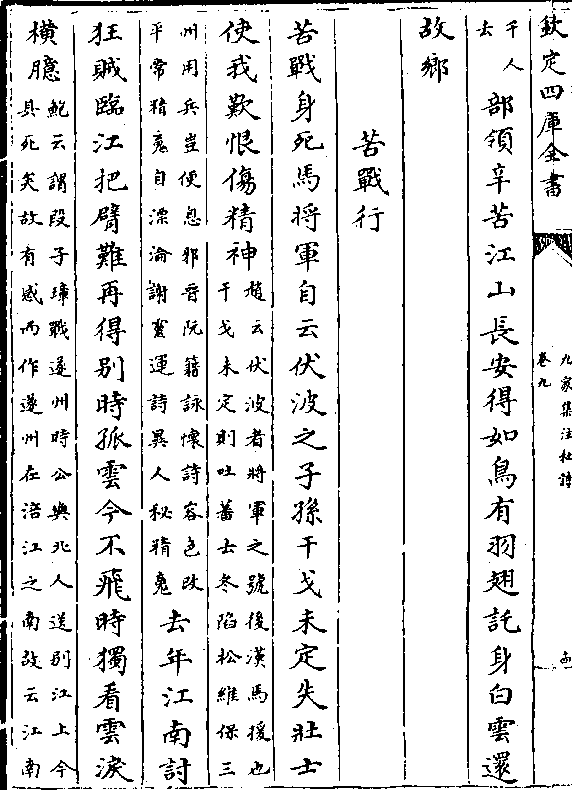 欽定四庫全書
九家集注杜詩
卷九
千人
去
部領辛苦江山長安得如鳥有羽翅託身白雲還
故鄉
苦戰行
苦戰身死馬將軍自云伏波之子孫干戈未定失壯士
使我歎恨傷精神
趙云伏波者將軍之號後漢馬援也
干戈未定則吐蕃去冬陷松維保三
州用兵豈便息邪晉阮籍詠懷詩容色改
平常精魂自漂淪謝靈運詩異人秘精魂
去年江南討
狂賊臨江把臂難再得别時孤雲今不飛時獨看雲淚
横臆
鮑云謂段子璋戰遂州時公與北人送别江上今
具死矣故有感而作遂州在涪江之南故云江南